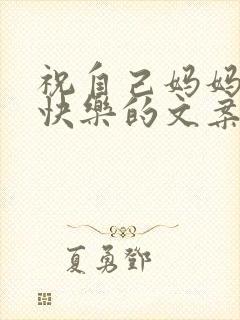 祝自己妈妈
快樂的文案
夏勇鄧